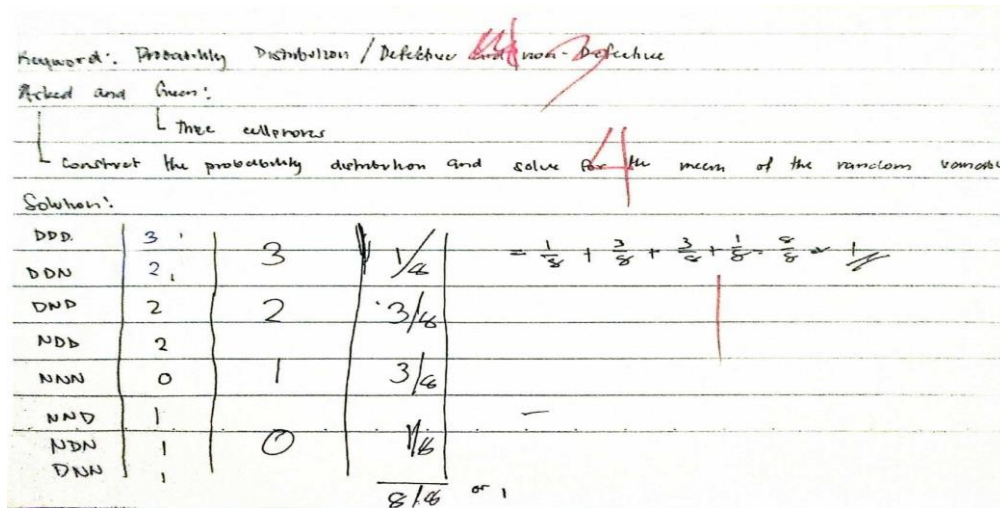 Keyword: Probability Distribution / Defektive and non-Defective
Asked and Given:
Three cellphones
Construct the probability distribution and solve for the mean of the random variable
4
Solution:
DDD 3 3 1/8 = 1/8 + 3/8 + 3/8 + 1/8 = 8/8 or 1
DDN 2
DND 2 2 3/8
NDD 2
NNN 0 1 3/8
NND 1
NDN 1 0 1/8
DNN 1
8/8 or 1